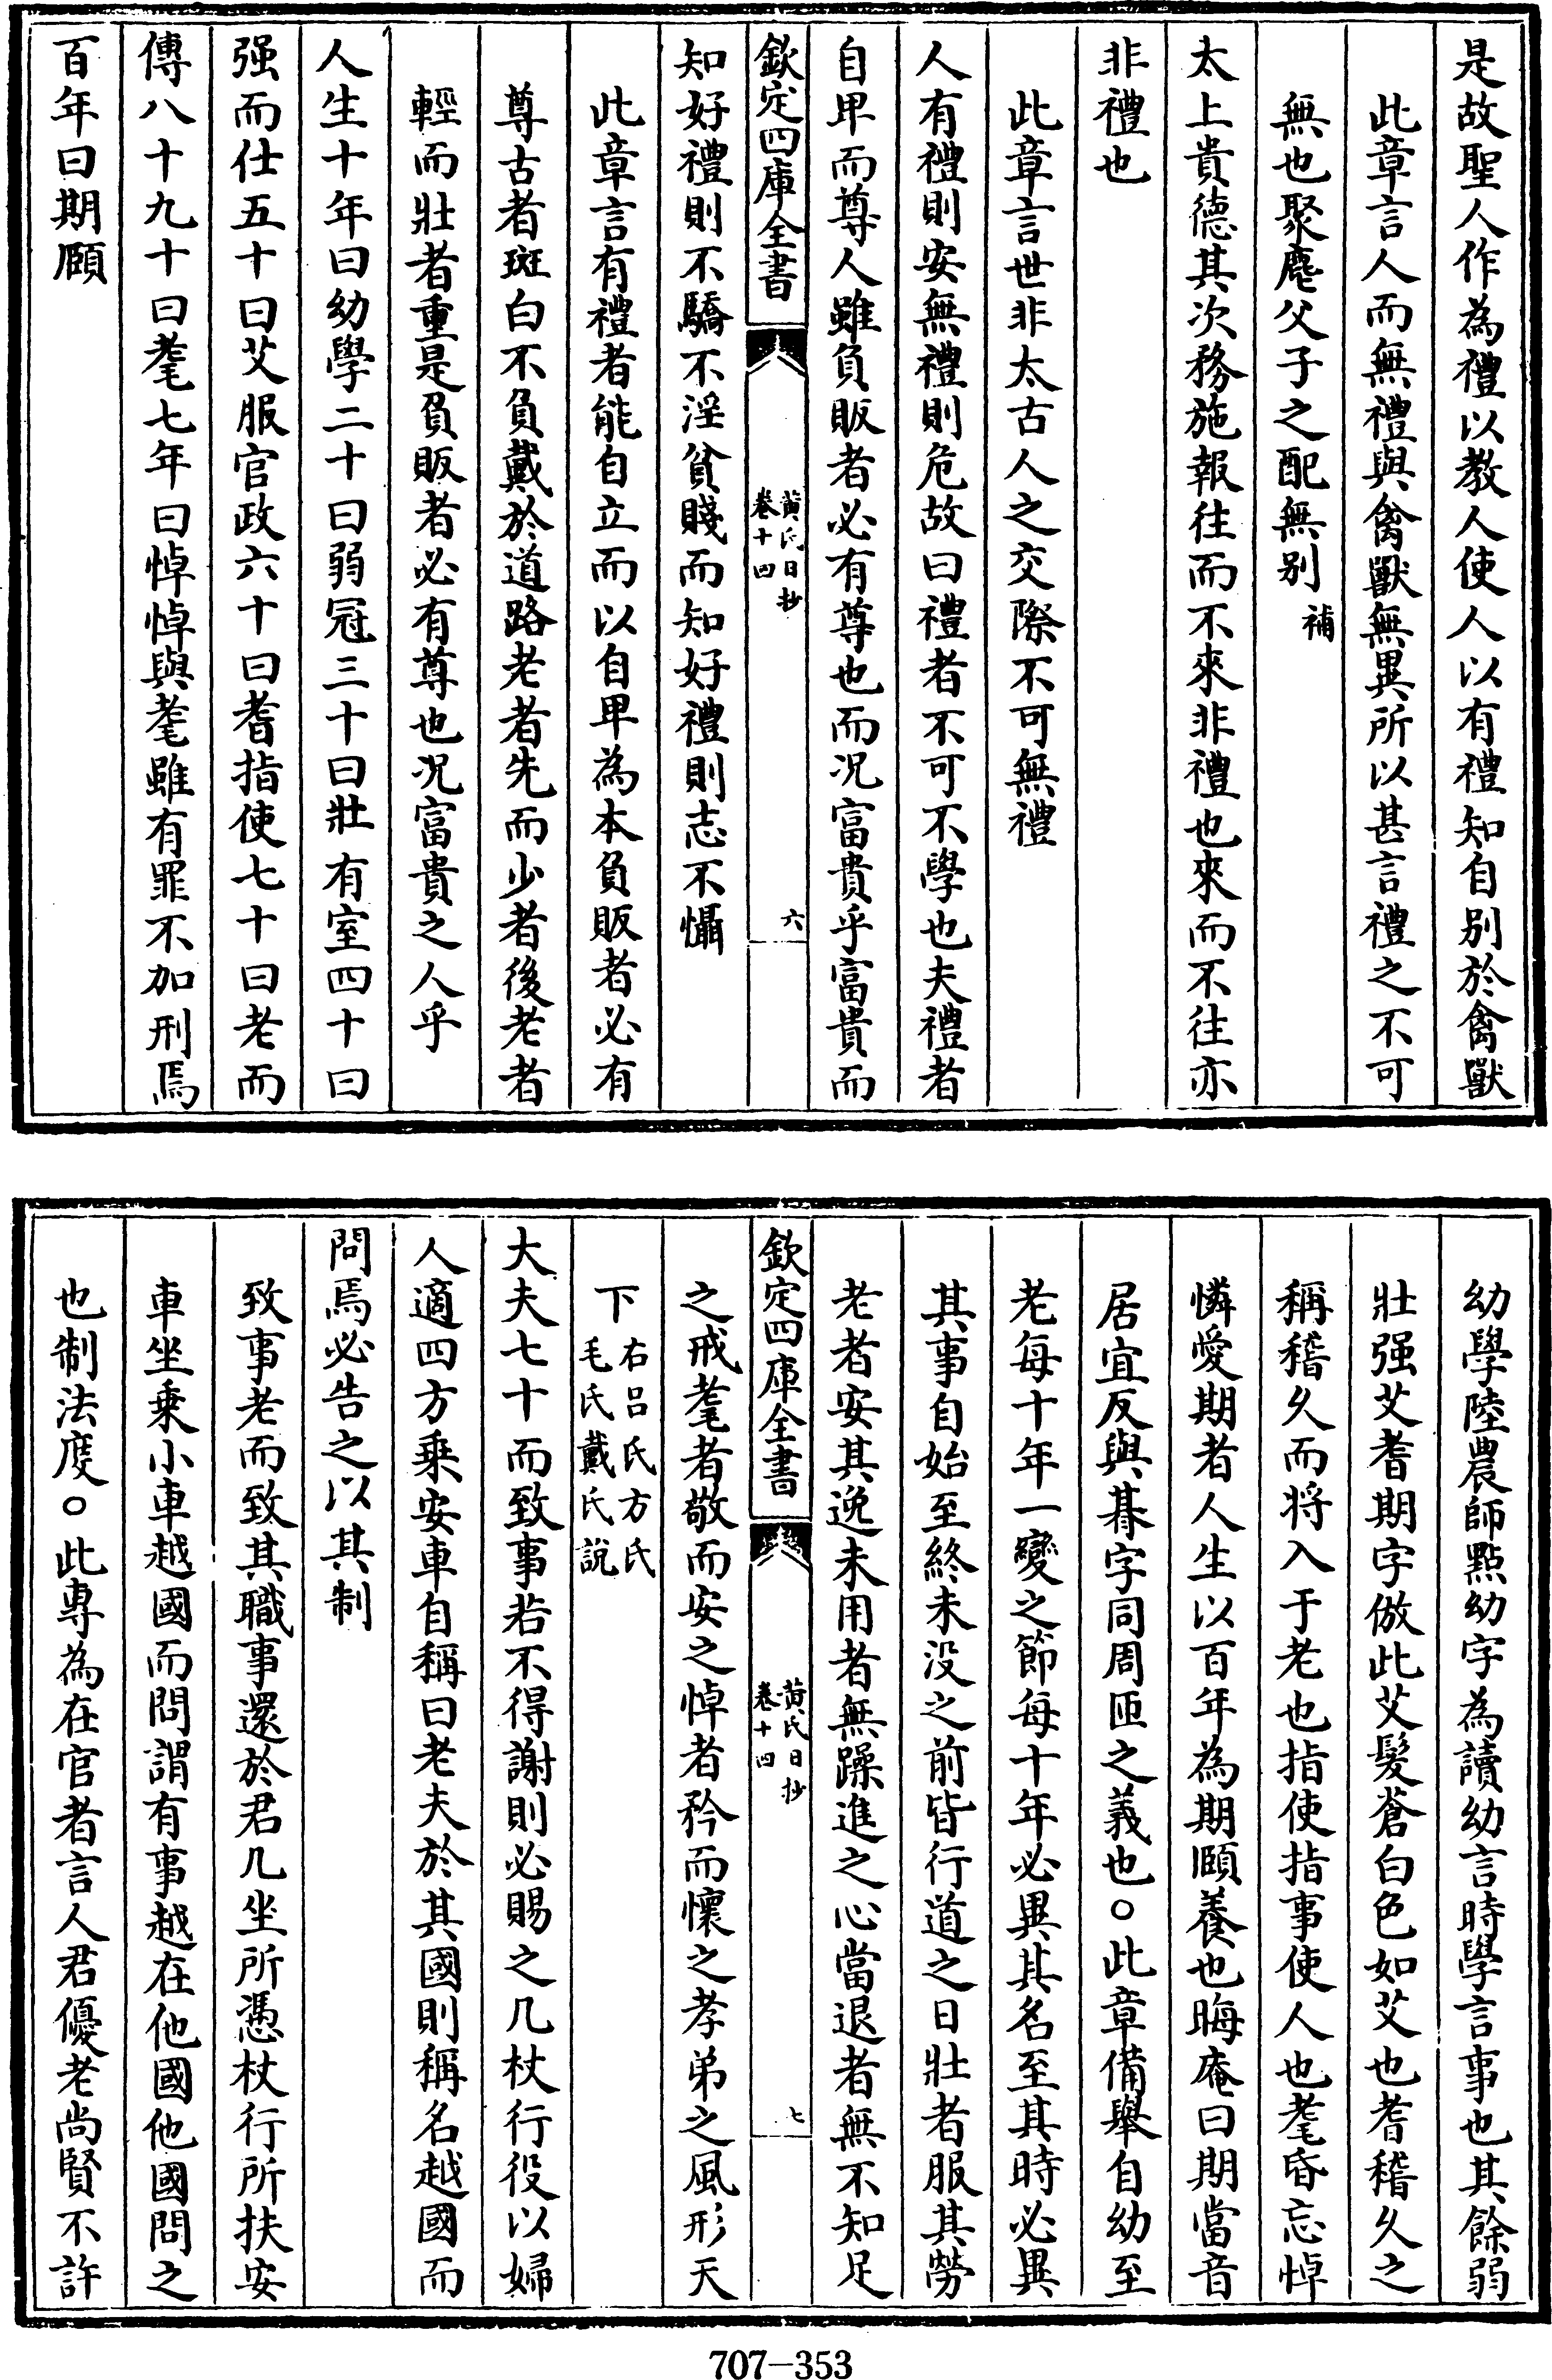 是故聖人作為禮以教人使人以有禮知自别於禽獸
此章言人而無禮與禽獸無異所以甚言禮之不可
無也聚麀父子之配無别補
太上貴德其次務施報往而不來非禮也來而不往亦
非禮也
此章言世非太古人之交際不可無禮
人有禮則安無禮則危故曰禮者不可不學也夫禮者
自卑而尊人雖負販者必有尊也而况富貴乎富貴而
欽定四庫全書
黄氏日抄
卷十四
六
知好禮則不驕不淫貧賤而知好禮則志不懾
此章言有禮者能自立而以自卑為本負販者必有
尊古者斑白不負戴於道路老者先而少者後老者
輕而壯者重是負販者必有尊也况富貴之人乎
人生十年曰幼學二十曰弱冠三十曰壯有室四十曰
强而仕五十曰艾服官政六十曰耆指使七十曰老而
傳八十九十曰耄七年曰悼悼與耄雖有罪不加刑焉
百年曰期頤
幼學陸農師點幼字為讀幼言時學言事也其餘弱
壯强艾耆期字倣此艾髮蒼白色如艾也耆稽久之
稱稽久而将入于老也指使指事使人也耄昏忘悼
憐愛期者人生以百年為期頤養也晦庵曰期當音
居宜反與朞字同周匝之義也○此章備舉自幼至
老每十年一變之節每十年必異其名至其時必異
其事自始至終未没之前皆行道之日壯者服其勞
老者安其逸未用者無躁進之心當退者無不知足
欽定四庫全書
黄氏日抄
卷十四
七
之戒耄者敬而安之悼者矜而懷之孝弟之風形天
下右吕氏方氏
毛氏戴氏說
大夫七十而致事若不得謝則必賜之几杖行役以婦
人適四方乘安車自稱曰老夫於其國則稱名越國而
問焉必告之以其制
致事老而致其職事還於君几坐所憑杖行所扶安
車坐乗小車越國而問謂有事越在他國他國問之
也制法度○此專為在官者言人君優老尚賢不許
707-353